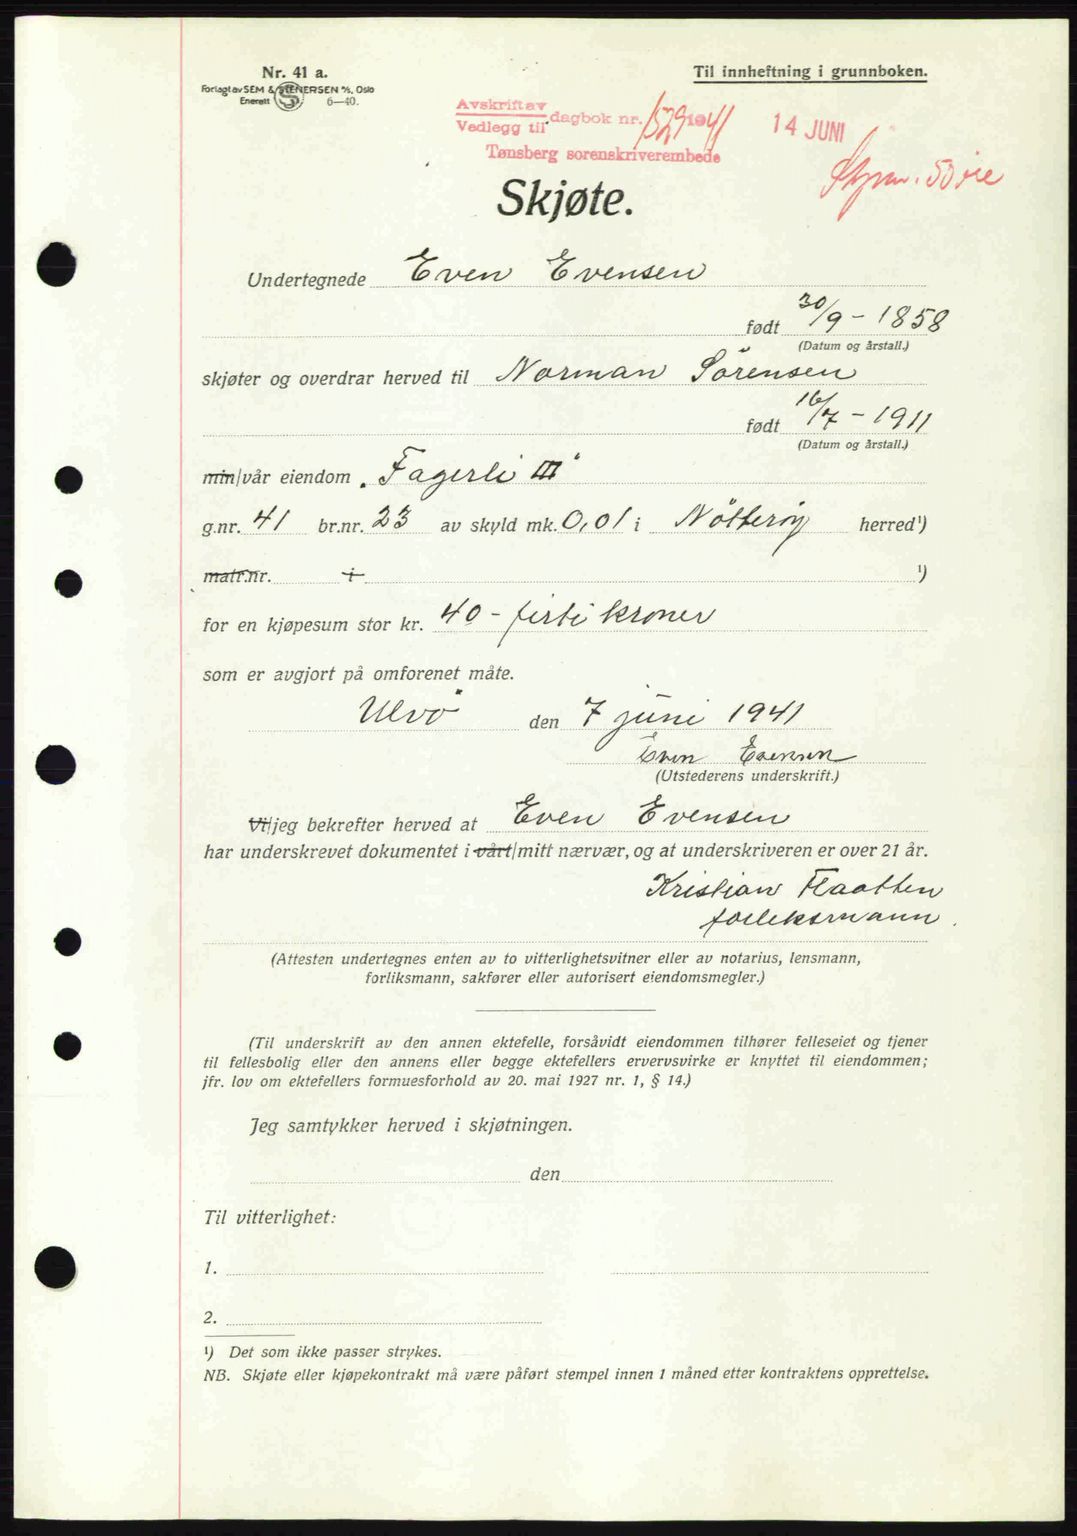 Nr. 41 a.
Forlagt av SEM & STENERSEN A/S, Oslo
Enerett 6—40.
Til innheftning i grunnboken.
Avskrift av
Vedlegg til dagbok nr. 1529 1941 14 JUNI
Tønsberg sorenskriverembede
50 øre
Skjøte.
Undertegnede Even Evensen
født 30/9 - 1858
(Datum og årstall.)
skjøter og overdrar herved til Norman Sörensen
født 16/7 - 1911
(Datum og årstall.)
min/vår eiendom „Fagerli III“
g.nr. 41 br.nr. 23 av skyld mk. 0,01 i Nötteröy herred¹)
matr.nr. i ¹)
for en kjøpesum stor kr. 40 - firti kroner
som er avgjort på omforenet måte.
Ulvö den 7 juni 1941
Even Evensen
(Utstederens underskrift.)
Vi/jeg bekrefter herved at Even Evensen
har underskrevet dokumentet i vårt/mitt nærvær, og at underskriveren er over 21 år.
Kristian Flaatten
forliksmann.
(Attesten undertegnes enten av to vitterlighetsvitner eller av notarius, lensmann,
forliksmann, sakfører eller autorisert eiendomsmegler.)
(Til underskrift av den annen ektefelle, forsåvidt eiendommen tilhører felleseiet og tjener
til fellesbolig eller den annens eller begge ektefellers ervervsvirke er knyttet til eiendommen;
jfr. lov om ektefellers formuesforhold av 20. mai 1927 nr. 1, § 14.)
Jeg samtykker herved i skjøtningen.
den
Til vitterlighet:
1.
2.
¹) Det som ikke passer strykes.
NB. Skjøte eller kjøpekontrakt må være påført stempel innen 1 måned etter kontraktens opprettelse.